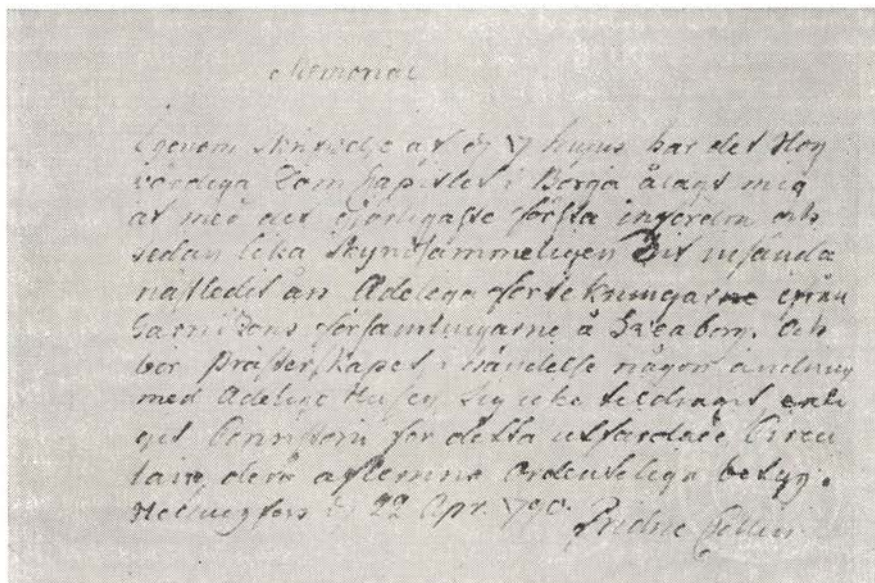 Memorial
Genom skrifvelse af d 17 hujus har det Hög
vördiga Dom Capitlet i Borgå ålagt mig
at med det  första infordra och
sedan lika skyndsammeligen dit insända
nästledit års Adeliga förtekningarne ifrån
Garnizons församlingarne å Sveaborg. Och
bör Prästerskapet, i händelse någon ändring
med Adelige Huset sig icke tildragit, enl
igt Consistorii för detta utfärdade Circu
laire, derå aflemna Ordenteliga betyg.
Helsingfors d 22 Apr. 1790.
Fridric Collin